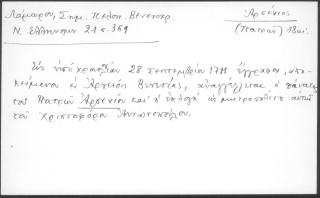 Λάμπρου, Σημ. Πελοπ. Βενετοκρ.
Ν. Ελληνομν 21 σ. 369
Ἀρσένιος
(Πατρῶν) 18 αι.
Εἰς ὑπὸ χρονολογίαν 28 Σεπτεμβρίου 17 ἔγγραφον, ἀπο-
κείμενον ἐν Ἀρχείοις Βενετίας, ἀναγγέλλεται ὁ θάνατος
τοῦ Πατρῶν Ἀρσενίου καὶ ἡ ἐκλογὴ ὡς μητροπολίτου αὐτῆς
τοῦ Χριστοφόρου Ἀντωνοπούλου.